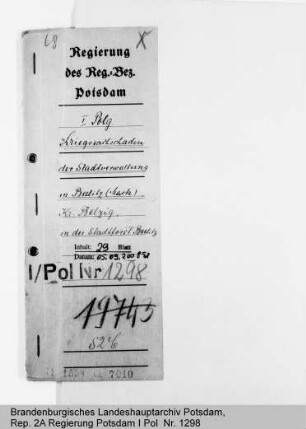 68 X
Regierung
des Reg.-Bez.
Potsdam
I. Polg
Kriegssachschäden
der Stadtverwaltung
in Beelitz (Mark)
Kr. Belzig
in der Stadtforst Beelitz
Inhalt: 29 Blatt
Datum: 05.09.200
I/Pol Nr 1298
19743
S2
7010
Brandenburgisches Landeshauptarchiv Potsdam,
Rep. 2A Regierung Potsdam I Pol Nr. 1298